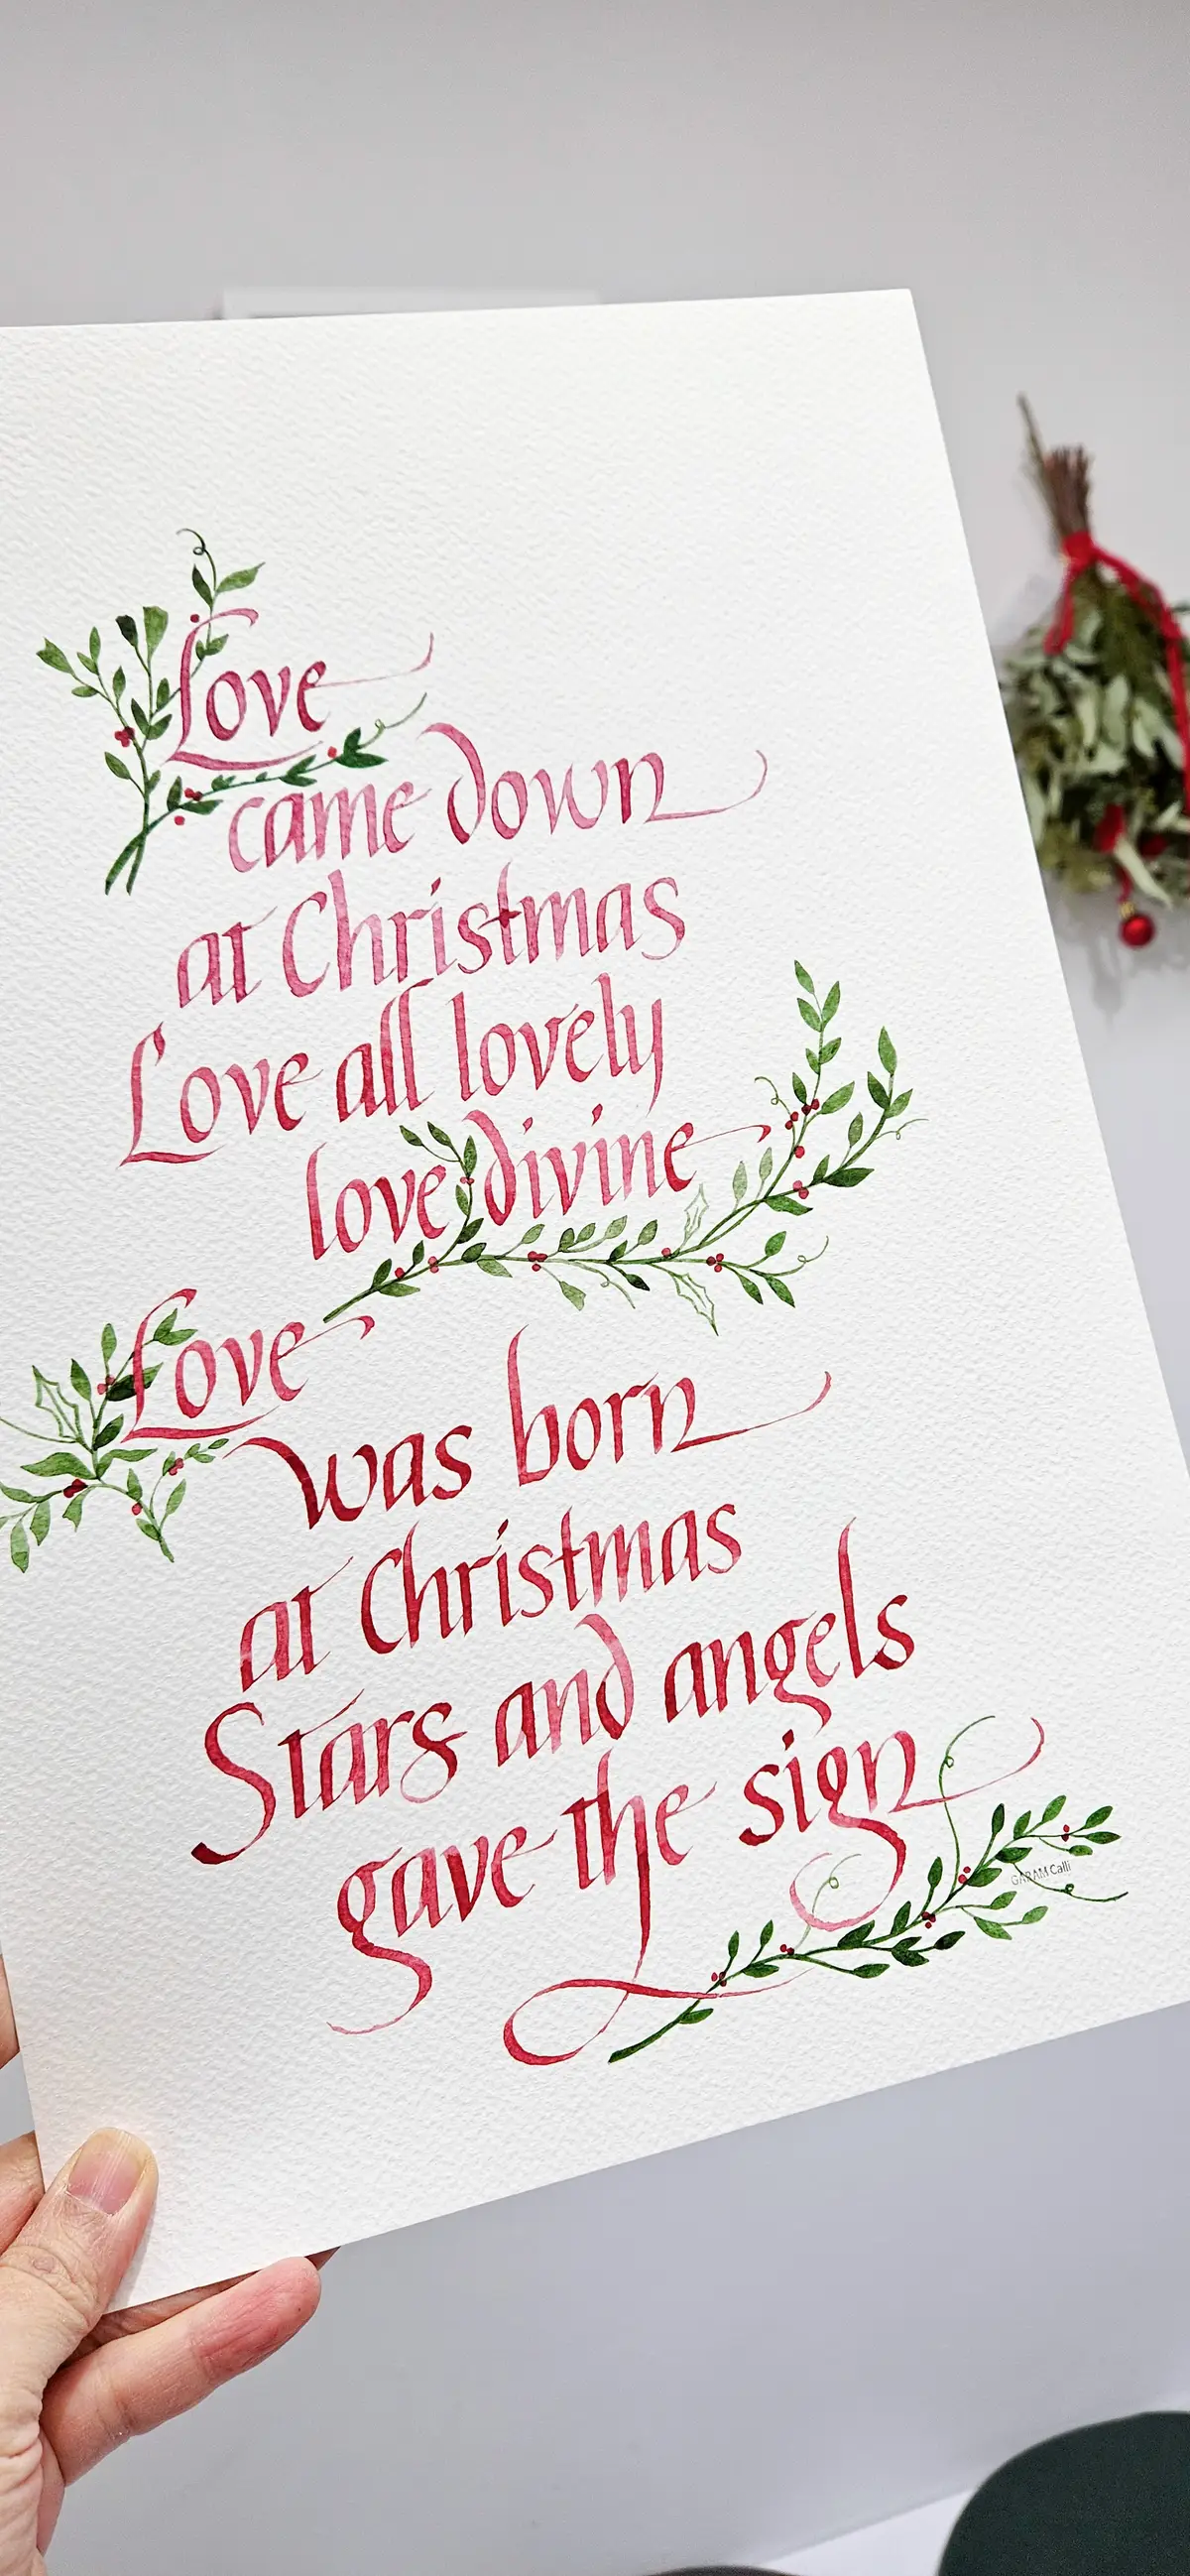 Love
came down
at Christmas
Love all lovely
love divine
Love
was born
at Christmas
Stars and angels
gave the sign
GARAM Calli